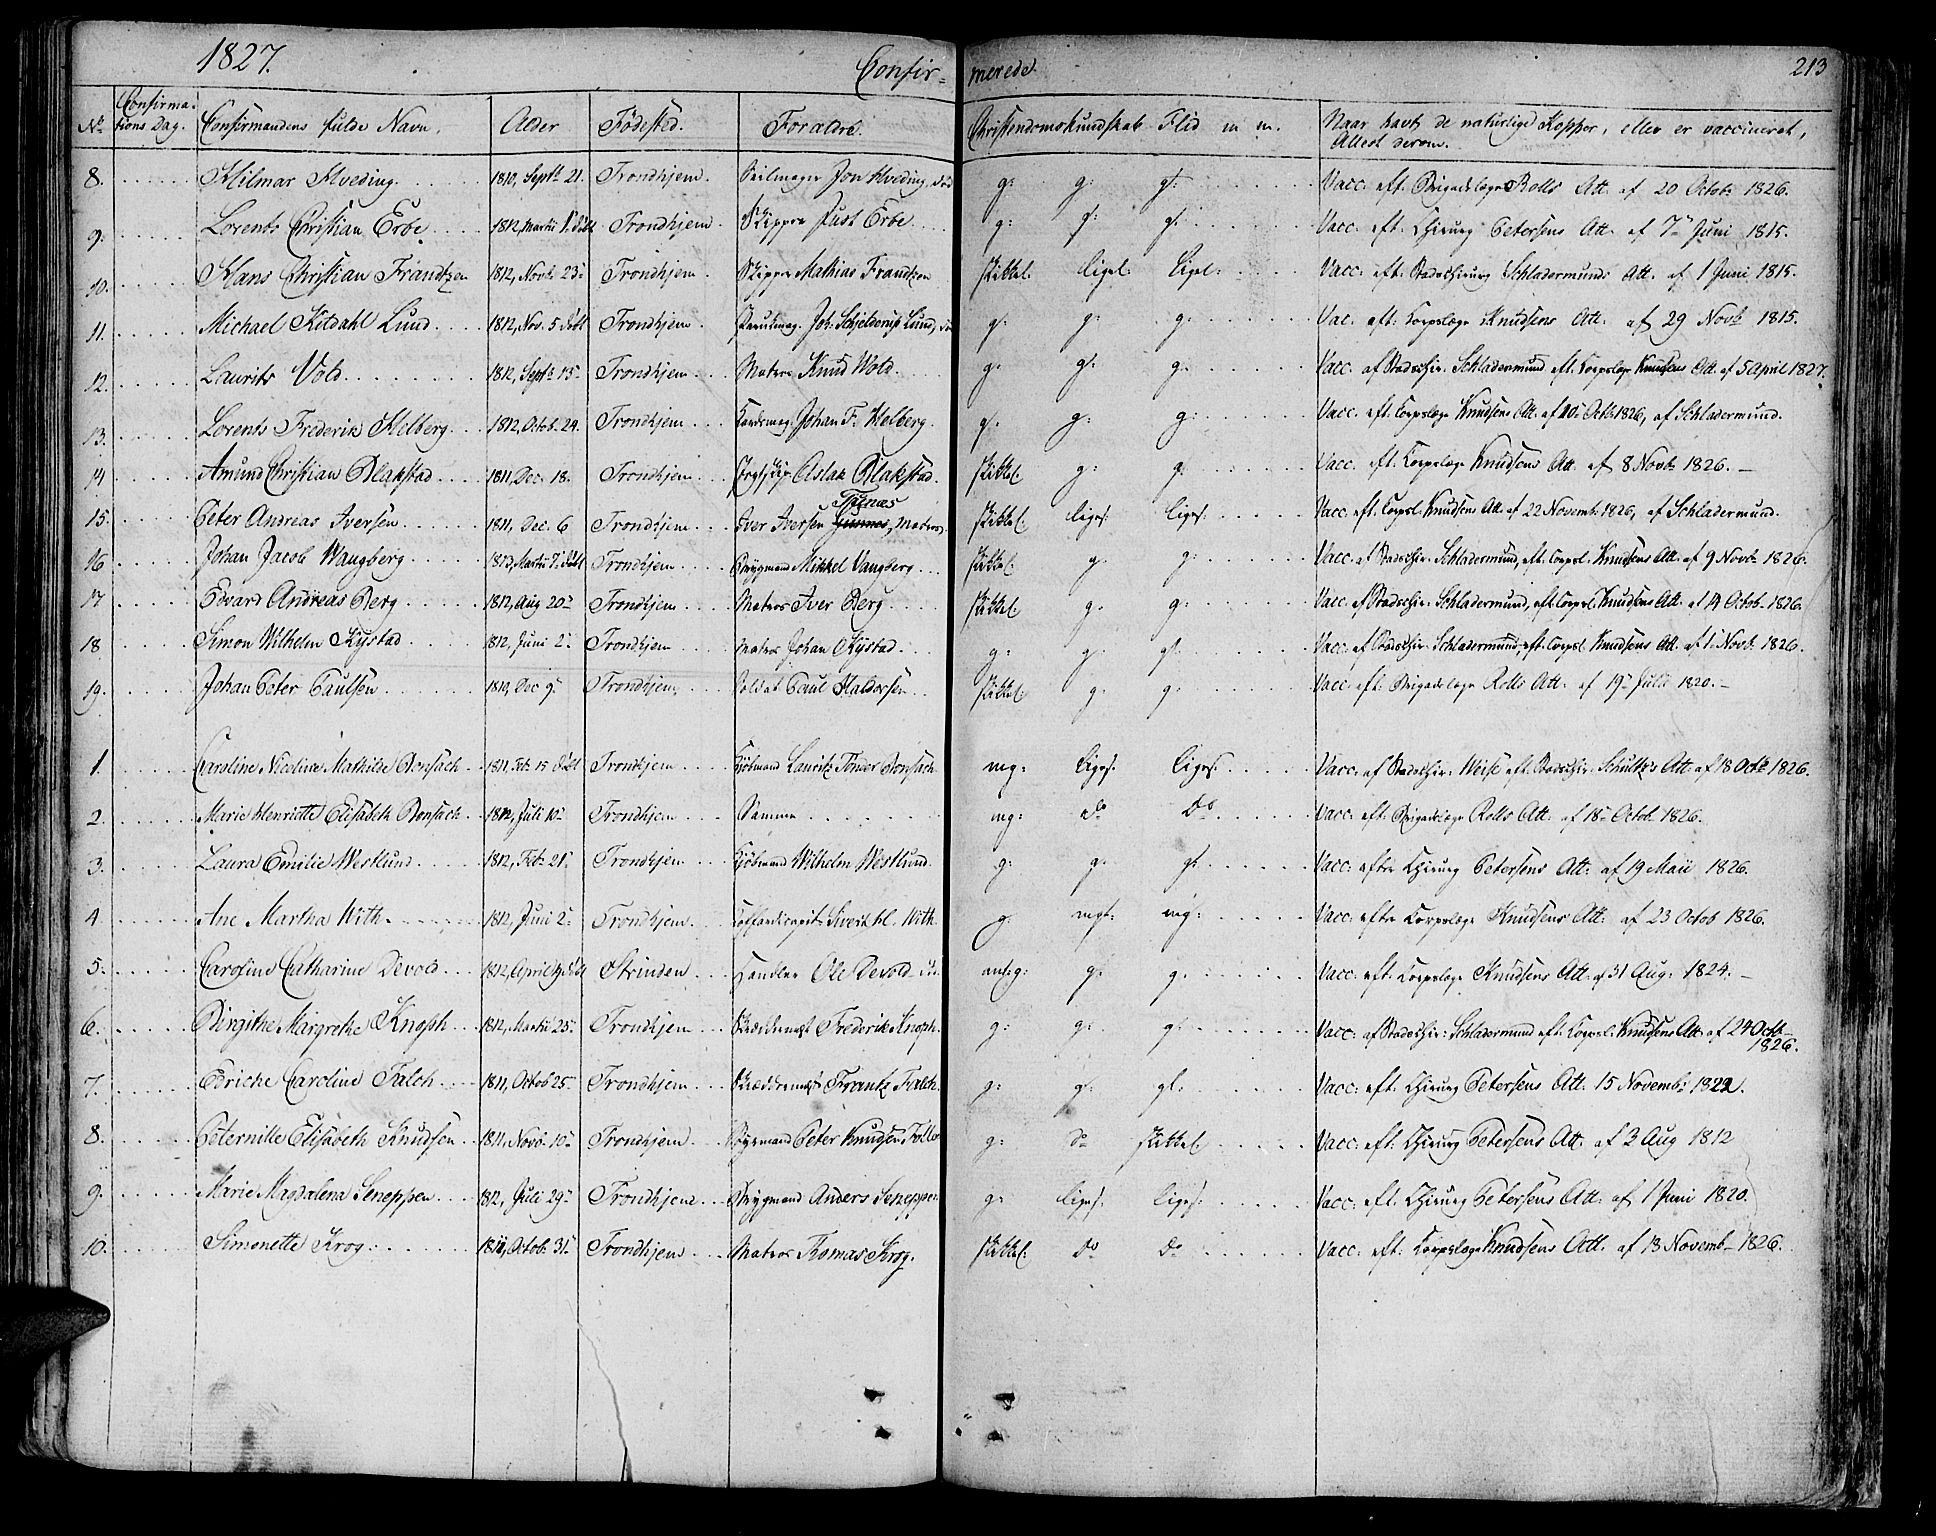 1827. Confir= merede. 213
No Confirma- tions Dag. Confirmandens fulde Navn. Alder Fødested. Forældre. Christendomskundskab Flid m m. Naar havt de naturlige Kopper, eller er vaccineret, Attest derom.
8. Hilmar Hveding. 1810, Septb 21. Trondhjem. Seilmager Jon Hveding g: g: g: Vacc: eft. Brigadelæge Rolls Att. af 20 Octob: 1826.
9. Lorents Christian Erbe 1812, Martii 1. døbt Trondhjem. Skipper Just Erbe g: g: g: Vacc. eft. Chirurg Petersens Att. af 7 Juni 1815.
10. Hans Christian Frandtzen 1812, Novb 23 Trondhjem. Skipper Mathias Frandtzen skikkel: ligel: ligel: Vacc. eft. Stadschirurg Schladermunds Att. af 1 Juni 1815.
11. Michael Kildahl Lund 1812, Nov. 5 døbt Trondhjem. Joh: Schjelderup Lund, g: g: g: Vac. eft. Corpslæge Knudsens Att. af 29 Novb 1815.
12. Laurits Vold 1812, Septb 15 Trondhjem Matros Knud Wold. g: g: g: Vacc. af Stadschir. Schladermund eft. Corpslæge Knudsens Att. af 5 April 1827.
13. Lorents Frederik Helberg 1812, Octob. 24. Trondhjem Johan F. Helberg. g: g: g: Vacc. eft. Corpslæge Knudsens Att. af 10 Octb 1826, af Schladermund.
14 Amund Christian Blakstad 1811, Dec. 18. Trondhjem Aslak Blakstad. skikkel: g: g: Vacc. eft. Corpslæge Knudsens Att. af 8 Novb 1826.
15. Peter Andreas Iversen 1811, Dec. 6 Trondhjem Iver Iversen Tønæs, Matros. skikkel: liges: liges: Vacc. eft. Corpsl. Knudsens Att. af 22 Novemb: 1826, af Schladermund.
16 Johan Jacob Waugberg 1812, Martii 7 døbt Trondhjem Brygmand Mikkel Vaugberg skikkel: g: g: Vacc. af Stadschir. Schladermund, eft. Corpsl. Knudsens Att. af 9 Novb: 1826.
17 Edvard Andreas Berg 1812, Aug 20 Trondhjem Matros Iver Berg skikkel: g: g: Vacc. af Stadschir. Schladermund, eft. Corpsl. Knudsens Att. af 14 Octob. 1826.
18 Simon Wilhelm Kystad 1812, Juni 2. Trondhjem Matros Johan Kystad. g: g: g: Vacc. af Stadschir. Schladermund, eft. Corpsl. Knudsens Att. af 1 Novb 1826.
19. Johan Peter Paulsen 1810, Dec 9. Trondhjem. Soldat Paul Haldorsen skikkel: g: g: Vacc. eft. Brigadelæge Rolls Att. af 19 Julii 1820.
1. Caroline Nicoline Mathilde Bonsach 1811, Feb. 15 døbt Trondhjem Kjøbmand Lauritz Finder Bonsach mg: liges: liges: Vacc: af Stadschir: Weise eft. Stadschir: Schultz's Att. af 18 Octb 1826.
2. Marie Henriette Elisabeth Bonsach 1812, Juli 10 Trondhjem Samme mg: do Do Vacc: eft. Brigadelæge Rolls Att. af 18 Octob. 1826.
3. Laura Emilie Westlund 1812, Feb. 21. Trondhjem Kjøbmand Wilhelm Westlund. g: g: g: Vacc: efter Chirurg Petersens Att: af 19 Maii 1826.
4 Ane Martha With. 1812, Juni 2. Trondhjem With. g: mg: mg: Vacc: efter Corpslæge Knudsens Att: af 23 Octob 1826.
5. Caroline Catharine Devold 1812, April 9 døbt Strinden Handler Ole Devold g: g: Vacc: eft. Corpslæge Knudsens Att. af 31 Aug: 1824.
6. Birgithe Margrethe Knoph 1812, Martii 25 Trondhjem Skræddermest Frederik Knoph. g: g: g: Vacc: af Stadschir: Schladermund eft. Corpsl. Knudsens Att. af 24 Octb 1826.
7. Edricke Caroline Falch 1811, Octob 25 Trondhjem Skræddermest Frantz Falch. g: g: g: Vacc: eft. Chirurg Petersens Att. 15 Novemb: 1822.
8. Peternille Elisabeth Knudsen 1811, Novb. 10 Trondhjem. Peter Knudsen g: do skikkel: Vacc: eft. Chirurg Petersens Att: af 2 Aug 1812
9. Marie Magdalena Seneppen 1812, Juli 29 Trondhjem Brygmand Anders Seneppen g: liges: liges: Vacc: eft. Chirurg Petersens Att: af 1 Juni 1820.
10. Simonette Krog. 1811, Octob. 31. Trondhjem Matros Thomas Krog. skikkel: do Do Vacc: eft. Corpslæge Knudsens Att. af 13 Novemb 1826.